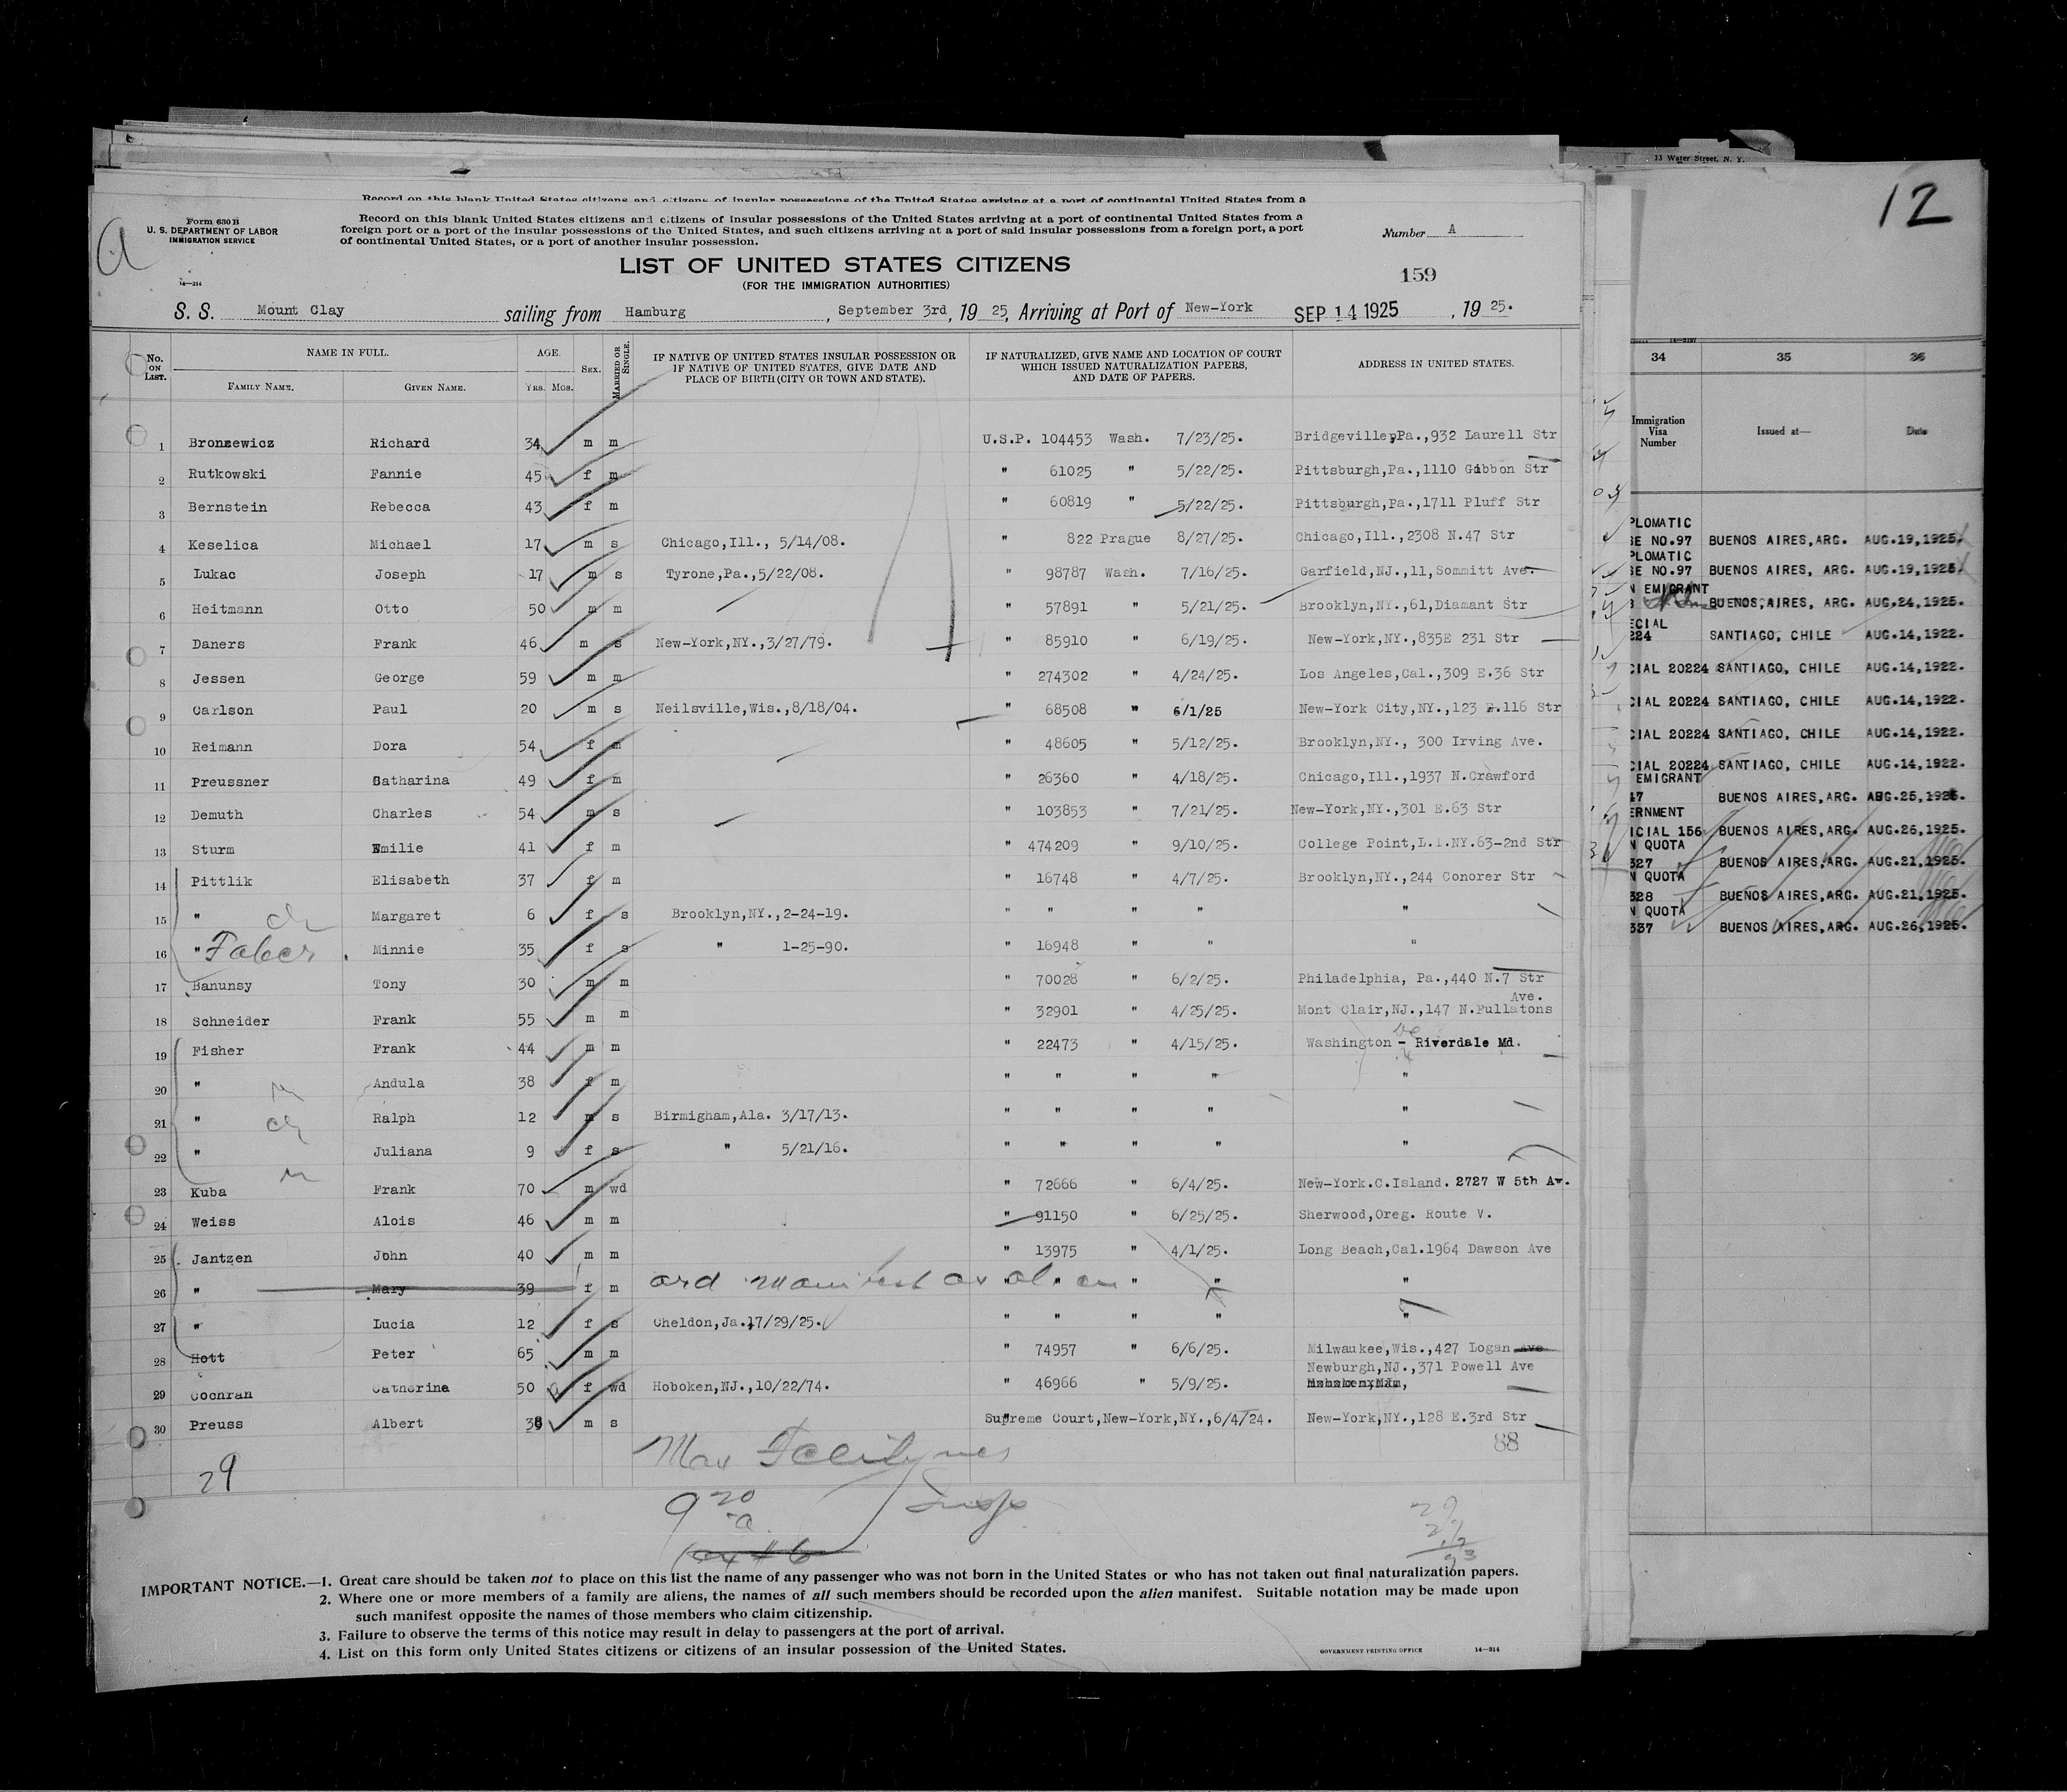 13 Water Street, N. Y.
12
Record on this blank United States citizens and citizens of insular possessions of the United States arriving at a port of continental United States from a
a
Form 630 B
U. S. DEPARTMENT OF LABOR
IMMIGRATION SERVICE
14—214
Record on this blank United States citizens and citizens of insular possessions of the United States arriving at a port of continental United States from a
foreign port or a port of the insular possessions of the United States, and such citizens arriving at a port of said insular possessions from a foreign port, a port
of continental United States, or a port of another insular possession.
Number A
LIST OF UNITED STATES CITIZENS
(FOR THE IMMIGRATION AUTHORITIES)
159
S. S. Mount Clay sailing from Hamburg, September 3rd, 19 25, Arriving at Port of New-York SEP 14 1925, 19 25.
No. ON LIST. NAME IN FULL. FAMILY NAME. GIVEN NAME. AGE. YRS. MOS. SEX. MARRIED OR SINGLE. IF NATIVE OF UNITED STATES INSULAR POSSESSION OR IF NATIVE OF UNITED STATES, GIVE DATE AND PLACE OF BIRTH (CITY OR TOWN AND STATE). IF NATURALIZED, GIVE NAME AND LOCATION OF COURT WHICH ISSUED NATURALIZATION PAPERS, AND DATE OF PAPERS. ADDRESS IN UNITED STATES.
1 Bronzewicz Richard 34 m m U.S.P. 104453 Wash. 7/23/25. Bridgeville,Pa.,932 Laurell Str
2 Rutkowski Fannie 45 f m " 61025 " 5/22/25. Pittsburgh,Pa.,1110 Gibbon Str
3 Bernstein Rebecca 43 f m " 60819 " 5/22/25. Pittsburgh,Pa.,1711 Pluff Str
4 Keselica Michael 17 m s Chicago,Ill., 5/14/08. " 822 Prague 8/27/25. Chicago,Ill.,2308 N.47 Str
5 Lukac Joseph 17 m s Tyrone,Pa.,5/22/08. " 98787 Wash. 7/16/25. Garfield,NJ.,11,Sommitt Ave.
6 Heitmann Otto 50 m m " 57891 " 5/21/25. Brooklyn,NY.,61,Diamant Str
7 Daners Frank 46 m s New-York,NY.,3/27/79. " 85910 " 6/19/25. New-York,NY.,835E 231 Str
8 Jessen George 59 m m " 274302 " 4/24/25. Los Angeles,Cal.,309 E.36 Str
9 Carlson Paul 20 m s Neilsville,Wis.,8/18/04. " 68508 " 6/1/25 New-York City,NY.,123 E.116 Str
10 Reimann Dora 54 f m " 48605 " 5/12/25. Brooklyn,NY., 300 Irving Ave.
11 Preussner Catharina 49 f m " 26360 " 4/18/25. Chicago,Ill.,1937 N.Crawford
12 Demuth Charles 54 m s " 103853 " 7/21/25. New-York,NY.,301 E.63 Str
13 Sturm Emilie 41 f m " 474209 " 9/10/25. College Point,L.I.NY.63-2nd Str
14 Pittlik Elisabeth 37 f m " 16748 " 4/7/25. Brooklyn,NY.,244 Conorer Str
15 " ch Margaret 6 f s Brooklyn,NY.,2-24-19. " " " " "
16 " Faber Minnie 35 f s " 1-25-90. " 16948 " " "
17 Banunsy Tony 30 m m " 70028 " 6/2/25. Philadelphia, Pa.,440 N.7 Str
18 Schneider Frank 55 m m " 32901 " 4/25/25. Mont Clair,NJ.,147 N.Fullatons Ave.
19 Fisher Frank 44 m m " 22473 " 4/15/25. Washington - Riverdale Md.
20 " Andula 38 f m " " " " "
21 " ch Ralph 12 m s Birmigham,Ala. 3/17/13. " " " " "
22 " Juliana 9 f s " 5/21/16. " " " " "
23 Kuba Frank 70 m wd " 72666 " 6/4/25. New-York.C.Island. 2727 W 5th Av.
24 Weiss Alois 46 m m " 91150 " 6/25/25. Sherwood,Oreg. Route V.
25 Jantzen John 40 m m " 13975 " 4/1/25. Long Beach,Cal.1964 Dawson Ave
26 " Mary 39 f m ord manifest as alien " " " " "
27 " Lucia 12 f s Cheldon,Ja.17/29/25. " " " " "
28 Hott Peter 65 m m " 74957 " 6/6/25. Milwaukee,Wis.,427 Logan Ave
29 Cochran Catherina 50 f wd Hoboken,NJ.,10/22/74. " 46966 " 5/9/25. Newburgh,NJ.,371 Powell Ave
30 Preuss Albert 38 m s Supreme Court,New-York,NY.,6/4/24. New-York,NY.,128 E.3rd Str
88
29
Max
9 20 a
Insp
29
IMPORTANT NOTICE.—1. Great care should be taken not to place on this list the name of any passenger who was not born in the United States or who has not taken out final naturalization papers.
2. Where one or more members of a family are aliens, the names of all such members should be recorded upon the alien manifest. Suitable notation may be made upon
such manifest opposite the names of those members who claim citizenship.
3. Failure to observe the terms of this notice may result in delay to passengers at the port of arrival.
4. List on this form only United States citizens or citizens of an insular possession of the United States.
GOVERNMENT PRINTING OFFICE 14—214
34 35 36
Immigration Visa Number Issued at— Date
PLOMATIC
SE NO.97 BUENOS AIRES,ARG. AUG.19,1925.
PLOMATIC
SE NO.97 BUENOS AIRES, ARG. AUG.19,1925.
N EMIGRANT
BUENOS,AIRES, ARG. AUG.24,1925.
ECIAL
224 SANTIAGO, CHILE AUG.14,1922.
CIAL 20224 SANTIAGO, CHILE AUG.14,1922.
CIAL 20224 SANTIAGO, CHILE AUG.14,1922.
CIAL 20224 SANTIAGO, CHILE AUG.14,1922.
CIAL 20224 SANTIAGO, CHILE AUG.14,1922.
EMIGRANT
47 BUENOS AIRES,ARG. AUG.25,1925.
ERNMENT
ICIAL 156 BUENOS AIRES,ARG. AUG.26,1925.
N QUOTA
327 BUENOS AIRES,ARG. AUG.21,1925.
N QUOTA
328 BUENOS AIRES,ARG. AUG.21,1925.
N QUOTA
337 BUENOS AIRES,ARG. AUG.26,1925.